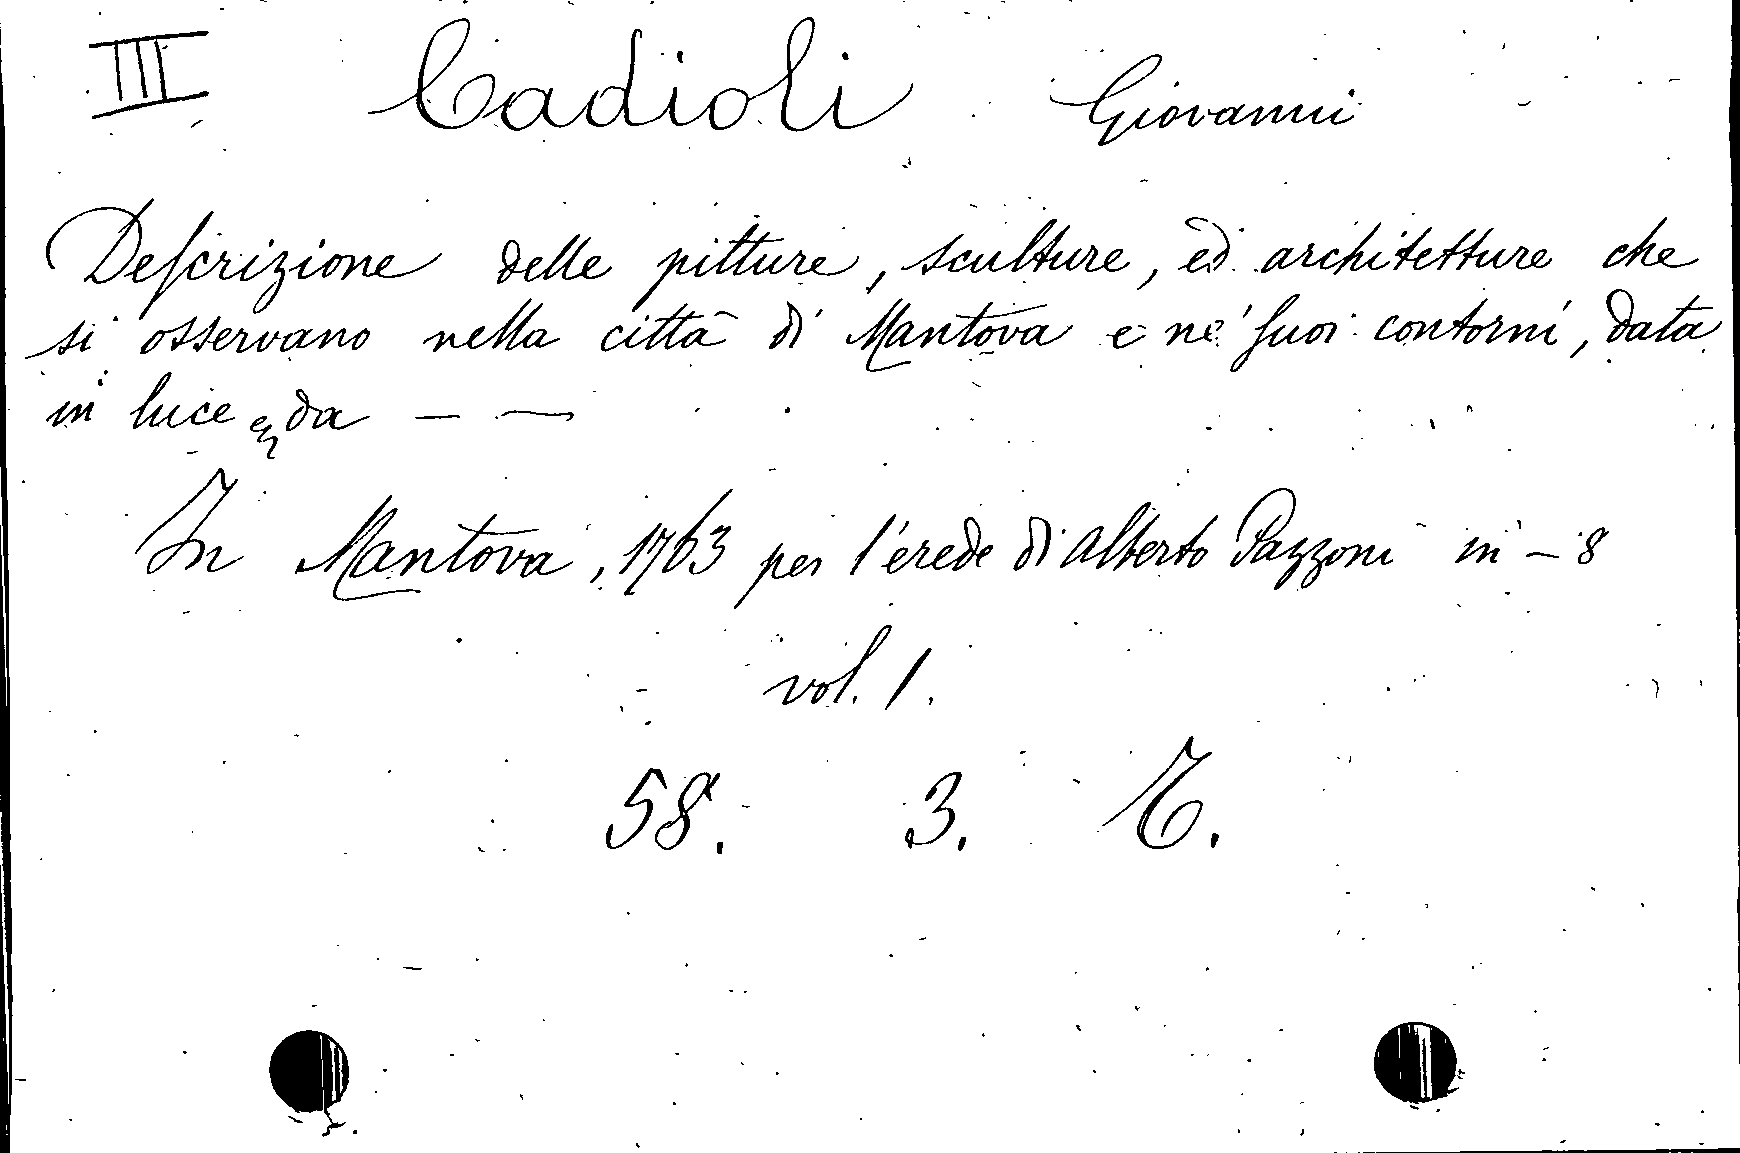 III Cadioli Giovanni
Descrizione delle pitture, sculture, ed architetture che
si osservano nella città di Mantova e ne' suoi contorni, data
in luce da — —
In Mantova, 1763 per l'erede di Alberto Pazzoni in - 8
vol. 1.
58. 3.